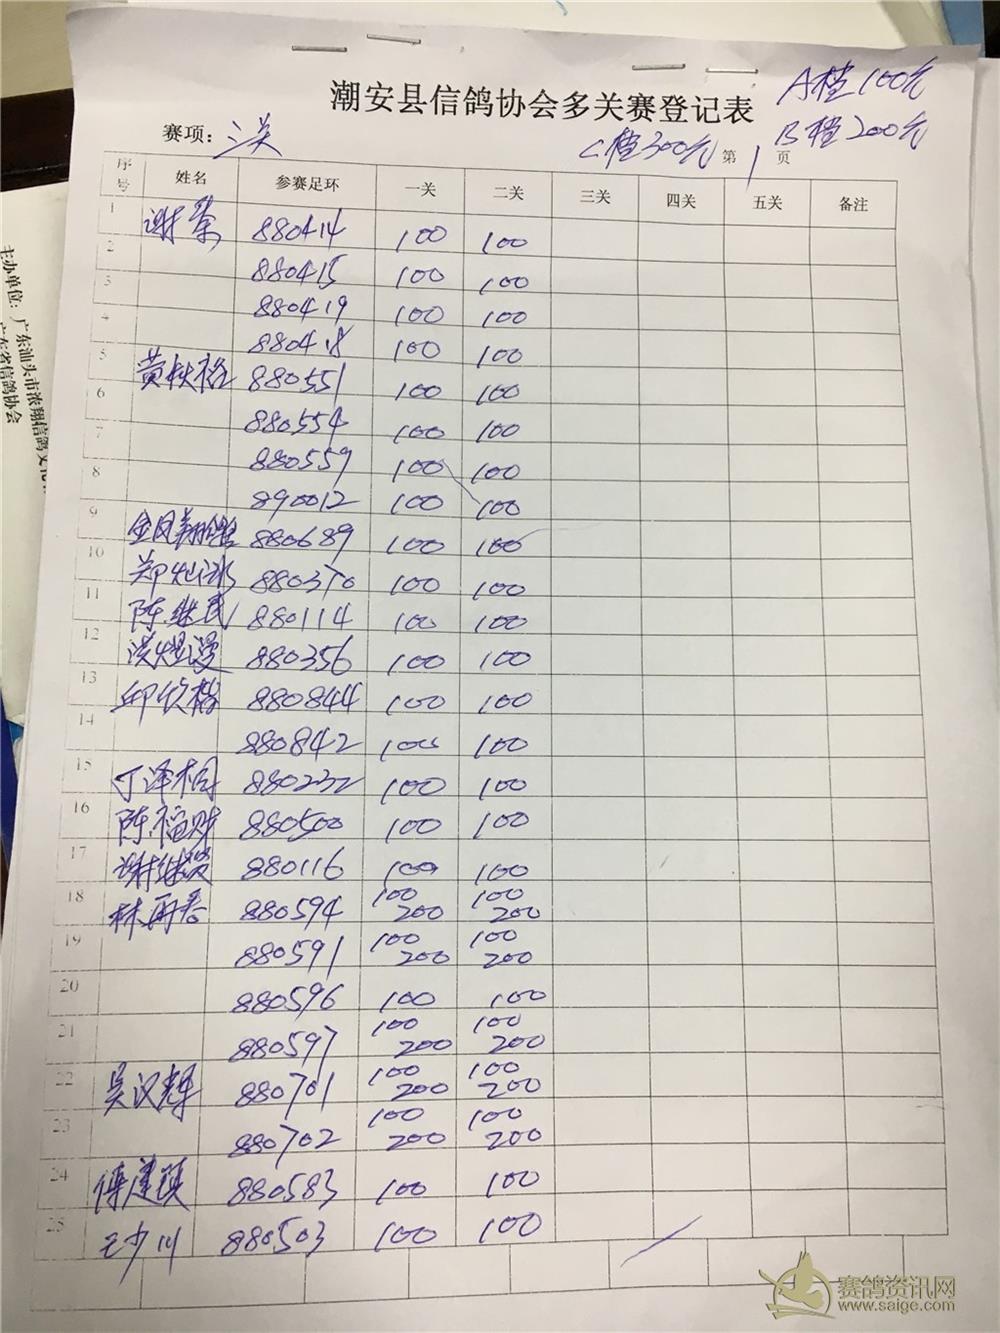 潮安县信鸽协会多关赛登记表
A档100元
B档200元
C档300元
赛项: 二关
第 1 页
序号 姓名 参赛足环 一关 二关 三关 四关 五关 备注
1 谢荣 880414 100 100
2 880415 100 100
3 880419 100 100
4 880418 100 100
5 黄 880551 100 100
6 880554 100 100
7 880559 100 100
8 890012 100 100
9 金凤翔 880689 100 100
10 郑 880370 100 100
11 陈继民 880114 100 100
12 洪煜漫 880356 100 100
13 邱 880844 100 100
14 880842 100 100
15 丁泽桐 880232 100 100
16 陈福财 880500 100 100
17 谢继贤 880116 100 100
18 林再 880594 100 200 100 200
19 880591 100 200 100 200
20 880596 100 100
21 880597 100 200 100 200
22 吴汉辉 880701 100 200 100 200
23 880702 100 200 100 200
24 880583 100 100
25 王少川 880503 100 100
主办单位：广东汕头市浓翔信鸽文化
广东省信鸽协会
赛鸽资讯网
www.saige.com